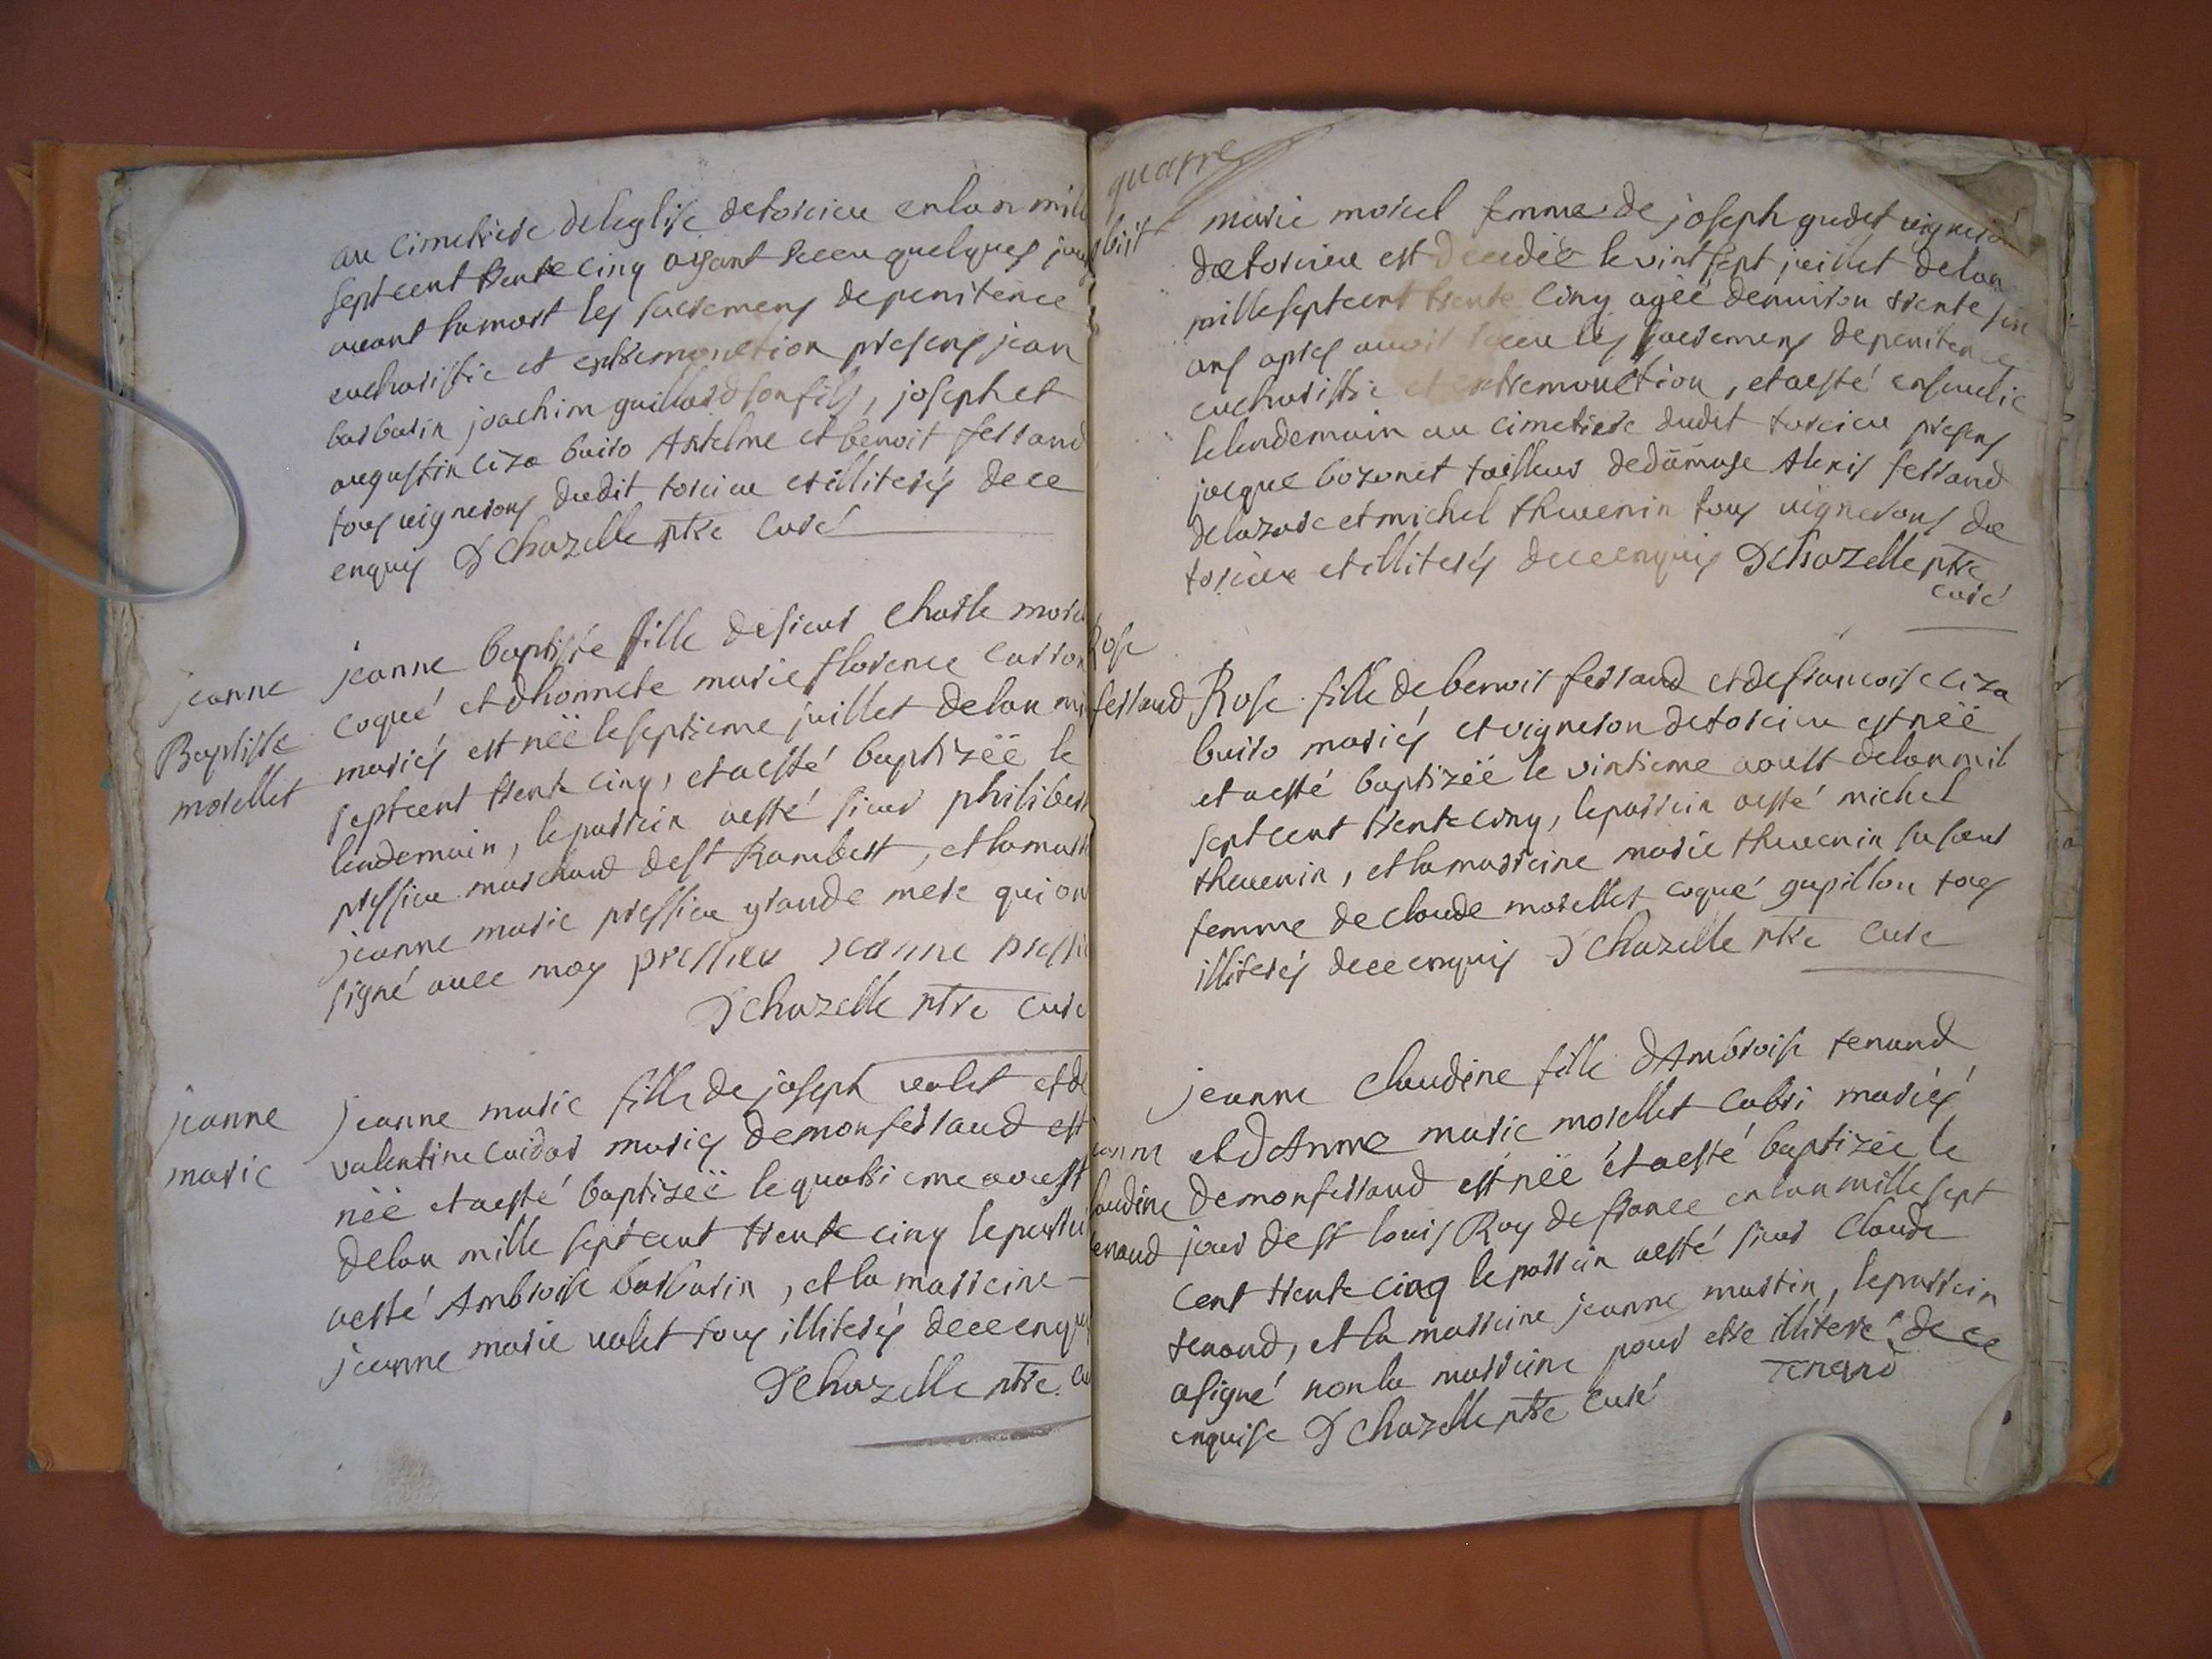 au cimetiere de leglise de torcieu en lan mil
sept cent trente cinq aiant receu quelques jours
avant sa mort les sacremens de penitence
eucharistie et extremonction presens jean
barbarin joachim guillard son fils, joseph et
augustin ciza buiro Antelme et benoit ferrand
tous vignerons dudit torcieu et illiterés de ce
enquis D chazelle ptre curé
jeanne
Baptiste
morellet
jeanne baptiste fille de sieur charle morel
coqué et dhonnete marie florence carron
mariés est néë le septieme juillet de lan mil
sept cent trente cinq, et a esté baptizéë le
lendemain, le parrein a esté sieur philibert
pressieu marchand de st Rambert, et la marr
jeanne marie pressieu grande mere qui on
signé avec moy pressieu jeanne pressie
D chazelle ptre cure
jeanne
marie
jeanne marie fille de joseph valet et de
valentine cuidar mariés de monferrand est
néë et a esté baptizéë le quatrieme aoust
de lan mille sept cent trente cinq le parrei
a esté Ambroise barbarin, et la marreine
jeanne marie valet tous illiterés de ce enquis
D chazelle ptre cu
quatre
obiit
marie morel femme de joseph gudet vigneron
de torcieu est decedéë le vint sept juillet de lan
mille sept cent trente cinq agéë denviron trente six
ans apres avoir receu les sacremens de penitence
eucharistie et extremonction, et a esté ensevelie
le lendemain au cimetiere dudit torcieu presens
jacque bozonet tailleur de damase Alexis ferrand
delazare et michel thevenin tous vignerons de
torcieu et illiterés de ce enquis D chazelle ptre
curé
Rose
ferrand
Rose fille de benoit ferrand et de francoise ciza
buiro mariés et vigneron de torcieu est néë
et a esté baptizéë le vintieme aoust de lan mil
sept cent trente cinq, le parrein a esté michel
thevenin, et la marreine marie thevenin sa sœur
femme de claude morellet coqué gupillon tous
illiterés de ce enquis D chazelle ptre cure
jeanne
laudine
tenand
jeanne claudine fille dAmbroise tenand
et dAnne marie morellet cabri mariés
de monferrand est néë et a esté baptizéë le
jour de st louis Roy de france en lan mille sept
cent trente cinq le parrein a esté sieur claude
tenand, et la marreine jeanne martin, le parrein
a signé non la marreine pour etre illiteré de ce
enquise D chazelle ptre curé tenand